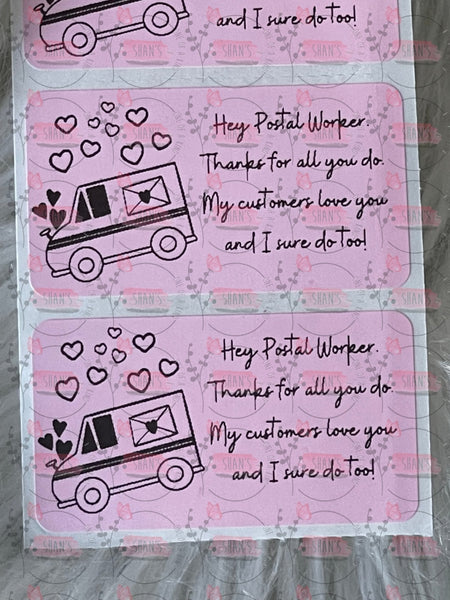 and I sure do too!
Hey Postal Worker.
Thanks for all you do.
My customers love you
and I sure do too!
Hey Postal Worker.
Thanks for all you do.
My customers love you
and I sure do too!
SHAN'S